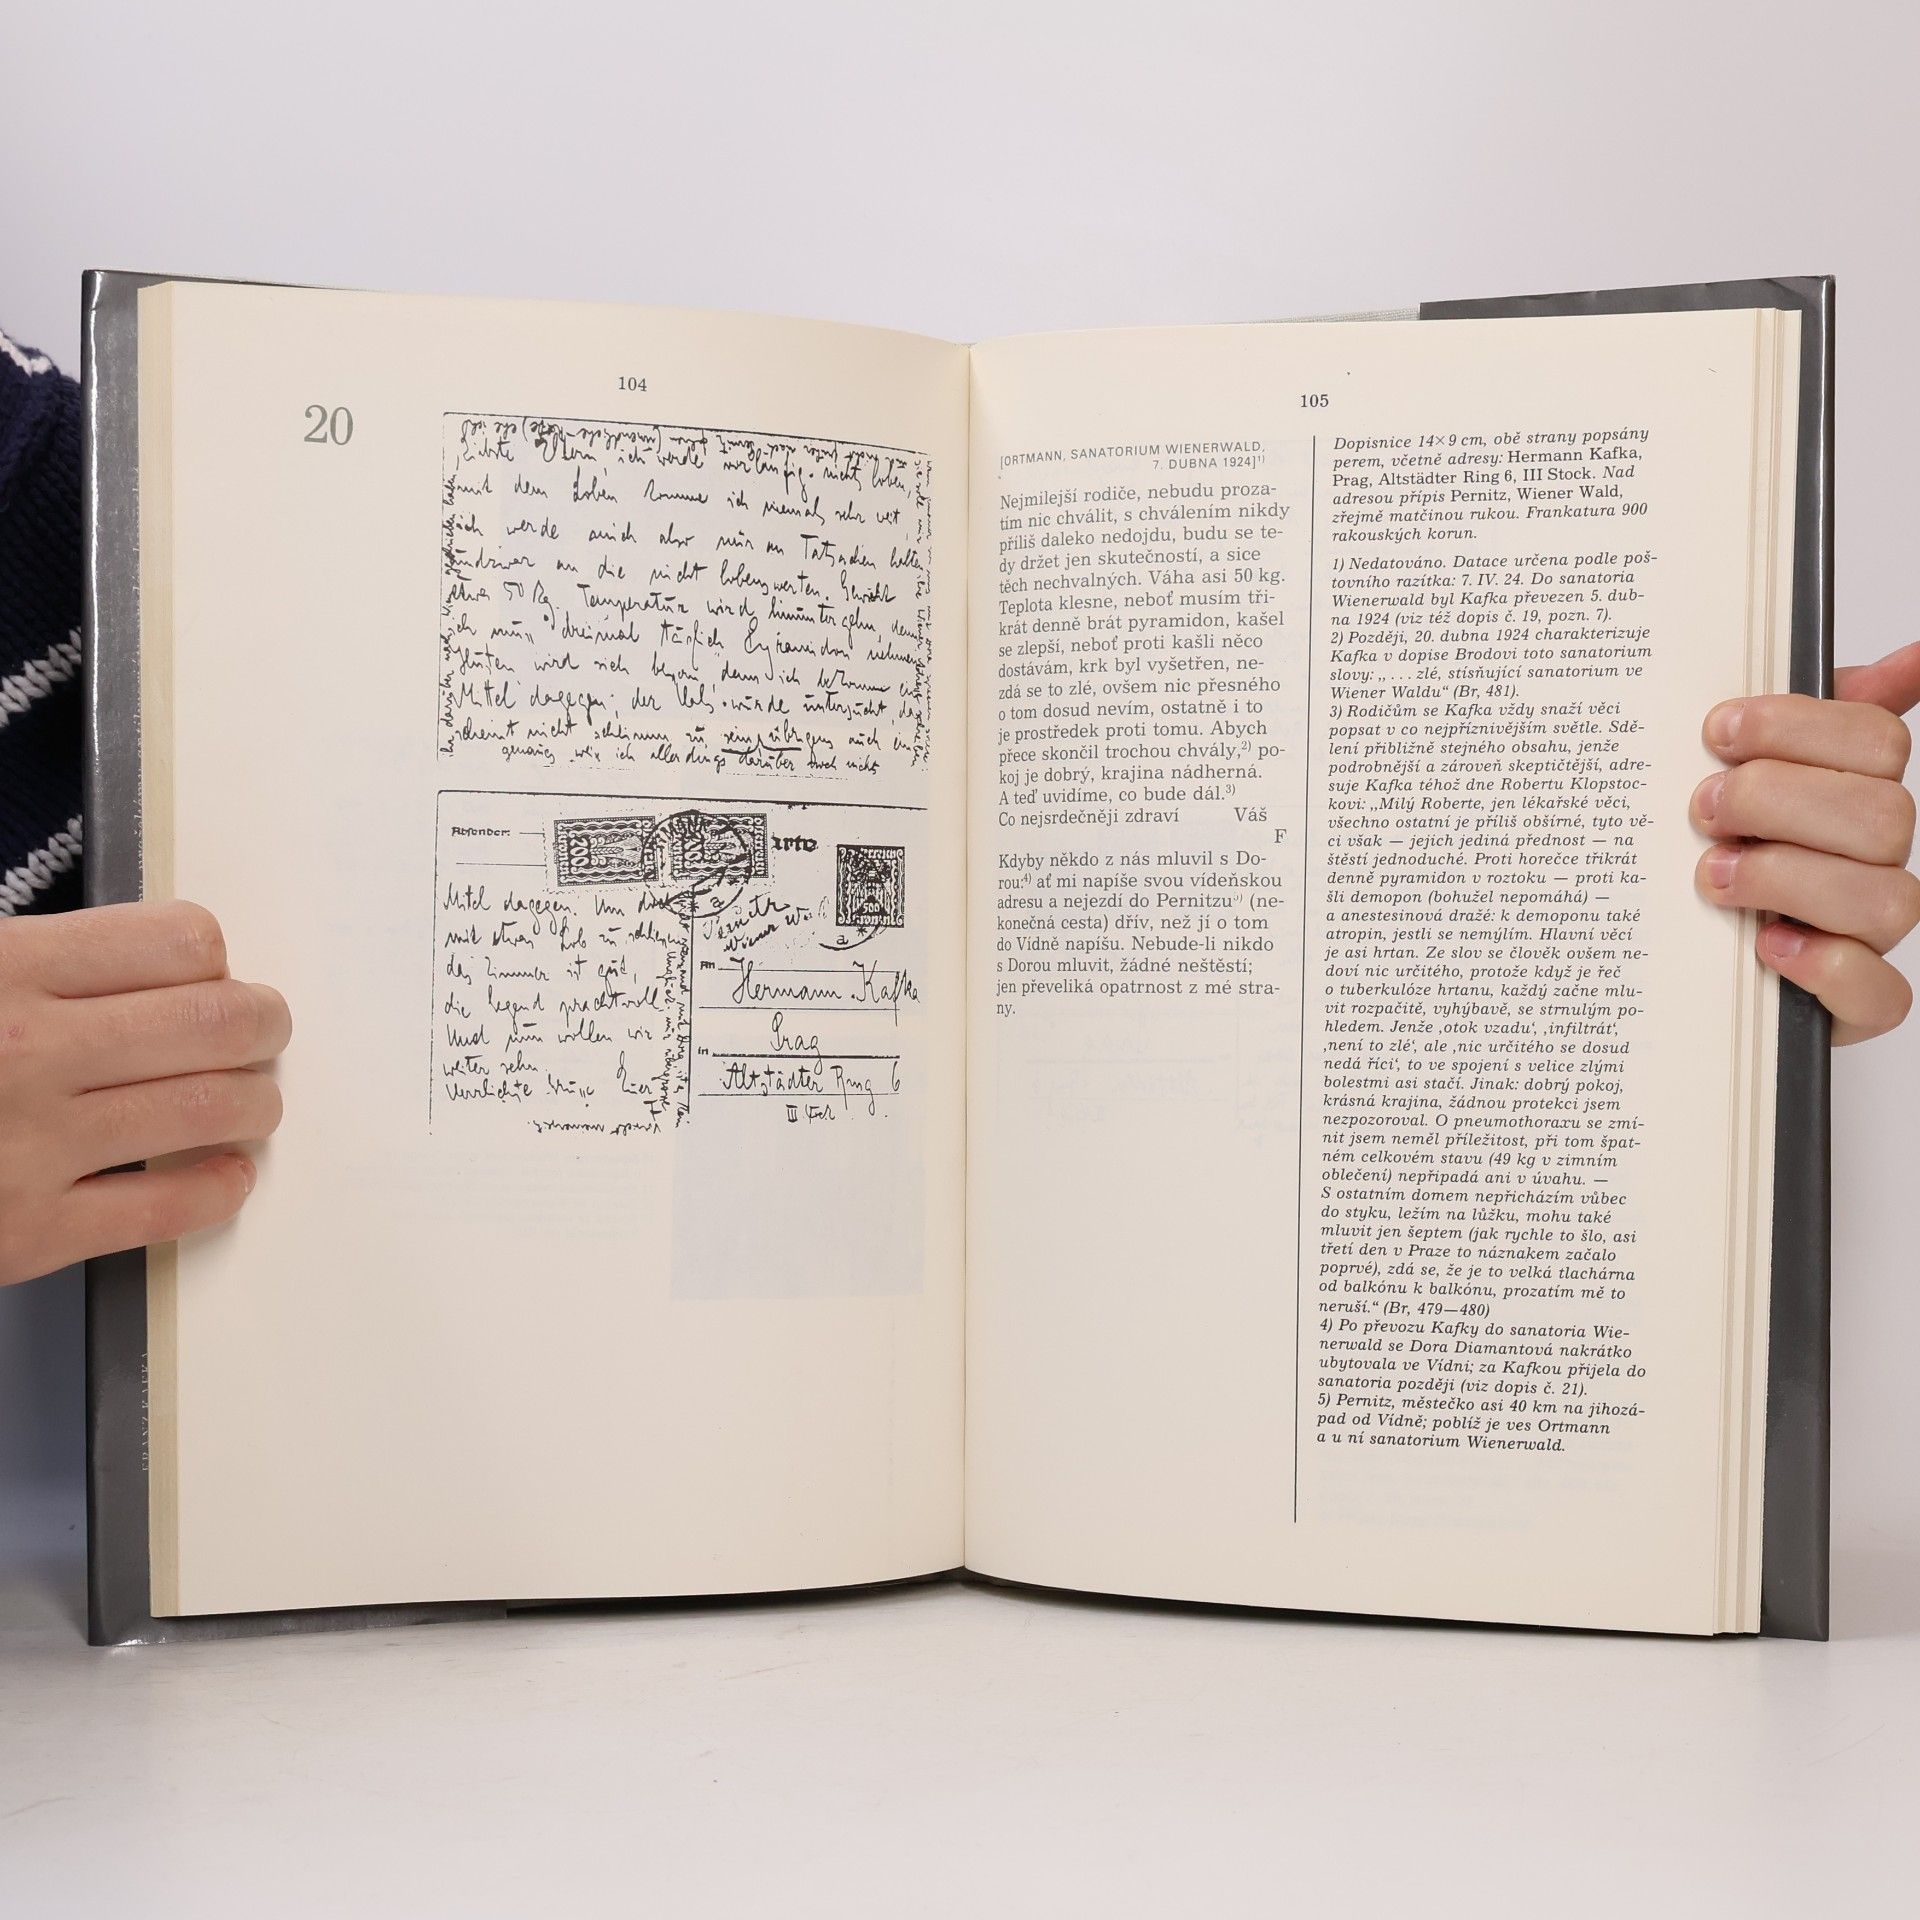 104
20
Liebste Eltern, ich werde vorläufig nichts loben,
mit dem Loben komme ich niemals sehr weit,
ich werde mich also nur an Tatsachen halten
undzwar an die nicht lobenswerten. Gewicht
etwa 50 Kg. Temperatur wird hinuntergehn, denn
ich muss dreimal täglich Pyramidon nehmen
Husten wird sich bessern, denn ich bekomme ein
Mittel dagegen; der Hals wurde untersucht, das
scheint nicht schlimm zu sein, übrigens auch ein
genaues weiss ich allerdings darüber noch nicht
Absender:
200
arte
500
Mittel dagegen. Um doch
mit etwas Lob zu schliessen
das Zimmer ist gut,
die Gegend prachtvoll
Und nun wollen wir
weiter sehn.
Herzlichste Grüsse Euer
F
Pernitz
Wiener Wald
An Hermann Kafka
Prag
in Altstädter Ring 6
III Stock
105
[ORTMANN, SANATORIUM WIENERWALD,
7. DUBNA 1924]1)
Nejmilejší rodiče, nebudu proza-
tím nic chválit, s chválením nikdy
příliš daleko nedojdu, budu se te-
dy držet jen skutečností, a sice
těch nechvalných. Váha asi 50 kg.
Teplota klesne, neboť musím tři-
krát denně brát pyramidon, kašel
se zlepší, neboť proti kašli něco
dostávám, krk byl vyšetřen, ne-
zdá se to zlé, ovšem nic přesného
o tom dosud nevím, ostatně i to
je prostředek proti tomu. Abych
přece skončil trochou chvály,2) po-
koj je dobrý, krajina nádherná.
A teď uvidíme, co bude dál.3)
Co nejsrdečněji zdraví Váš
F
Kdyby někdo z nás mluvil s Do-
rou:4) ať mi napíše svou vídeňskou
adresu a nejezdí do Pernitzu5) (ne-
konečná cesta) dřív, než jí o tom
do Vídně napíšu. Nebude-li nikdo
s Dorou mluvit, žádné neštěstí;
jen převeliká opatrnost z mé stra-
ny.
Dopisnice 14×9 cm, obě strany popsány
perem, včetně adresy: Hermann Kafka,
Prag, Altstädter Ring 6, III Stock. Nad
adresou přípis Pernitz, Wiener Wald,
zřejmě matčinou rukou. Frankatura 900
rakouských korun.
1) Nedatováno. Datace určena podle poš-
tovního razítka: 7. IV. 24. Do sanatoria
Wienerwald byl Kafka převezen 5. dub-
na 1924 (viz též dopis č. 19, pozn. 7).
2) Později, 20. dubna 1924 charakterizuje
Kafka v dopise Brodovi toto sanatorium
slovy: „. . . zlé, stísňující sanatorium ve
Wiener Waldu“ (Br, 481).
3) Rodičům se Kafka vždy snaží věci
popsat v co nejpříznivějším světle. Sdě-
lení přibližně stejného obsahu, jenže
podrobnější a zároveň skeptičtější, adre-
suje Kafka téhož dne Robertu Klopstoc-
kovi: „Milý Roberte, jen lékařské věci,
všechno ostatní je příliš obšírné, tyto vě-
ci však — jejich jediná přednost — na
štěstí jednoduché. Proti horečce třikrát
denně pyramidon v roztoku — proti ka-
šli demopon (bohužel nepomáhá) —
a anestesinová dražé: k demoponu také
atropin, jestli se nemýlím. Hlavní věcí
je asi hrtan. Ze slov se člověk ovšem ne-
doví nic určitého, protože když je řeč
o tuberkulóze hrtanu, každý začne mlu-
vit rozpačitě, vyhýbavě, se strnulým po-
hledem. Jenže ‚otok vzadu‘, ‚infiltrát‘,
‚není to zlé‘, ale ‚nic určitého se dosud
nedá říci‘, to ve spojení s velice zlými
bolestmi asi stačí. Jinak: dobrý pokoj,
krásná krajina, žádnou protekci jsem
nezpozoroval. O pneumothoraxu se zmí-
nit jsem neměl příležitost, při tom špat-
ném celkovém stavu (49 kg v zimním
oblečení) nepřipadá ani v úvahu. —
S ostatním domem nepřicházím vůbec
do styku, ležím na lůžku, mohu také
mluvit jen šeptem (jak rychle to šlo, asi
třetí den v Praze to náznakem začalo
poprvé), zdá se, že je to velká tlachárna
od balkónu k balkónu, prozatím mě to
neruší.“ (Br, 479—480)
4) Po převozu Kafky do sanatoria Wie-
nerwald se Dora Diamantová nakrátko
ubytovala ve Vídni; za Kafkou přijela do
sanatoria později (viz dopis č. 21).
5) Pernitz, městečko asi 40 km na jihozá-
pad od Vídně; poblíž je ves Ortmann
a u ní sanatorium Wienerwald.
FRANZ KAFKA